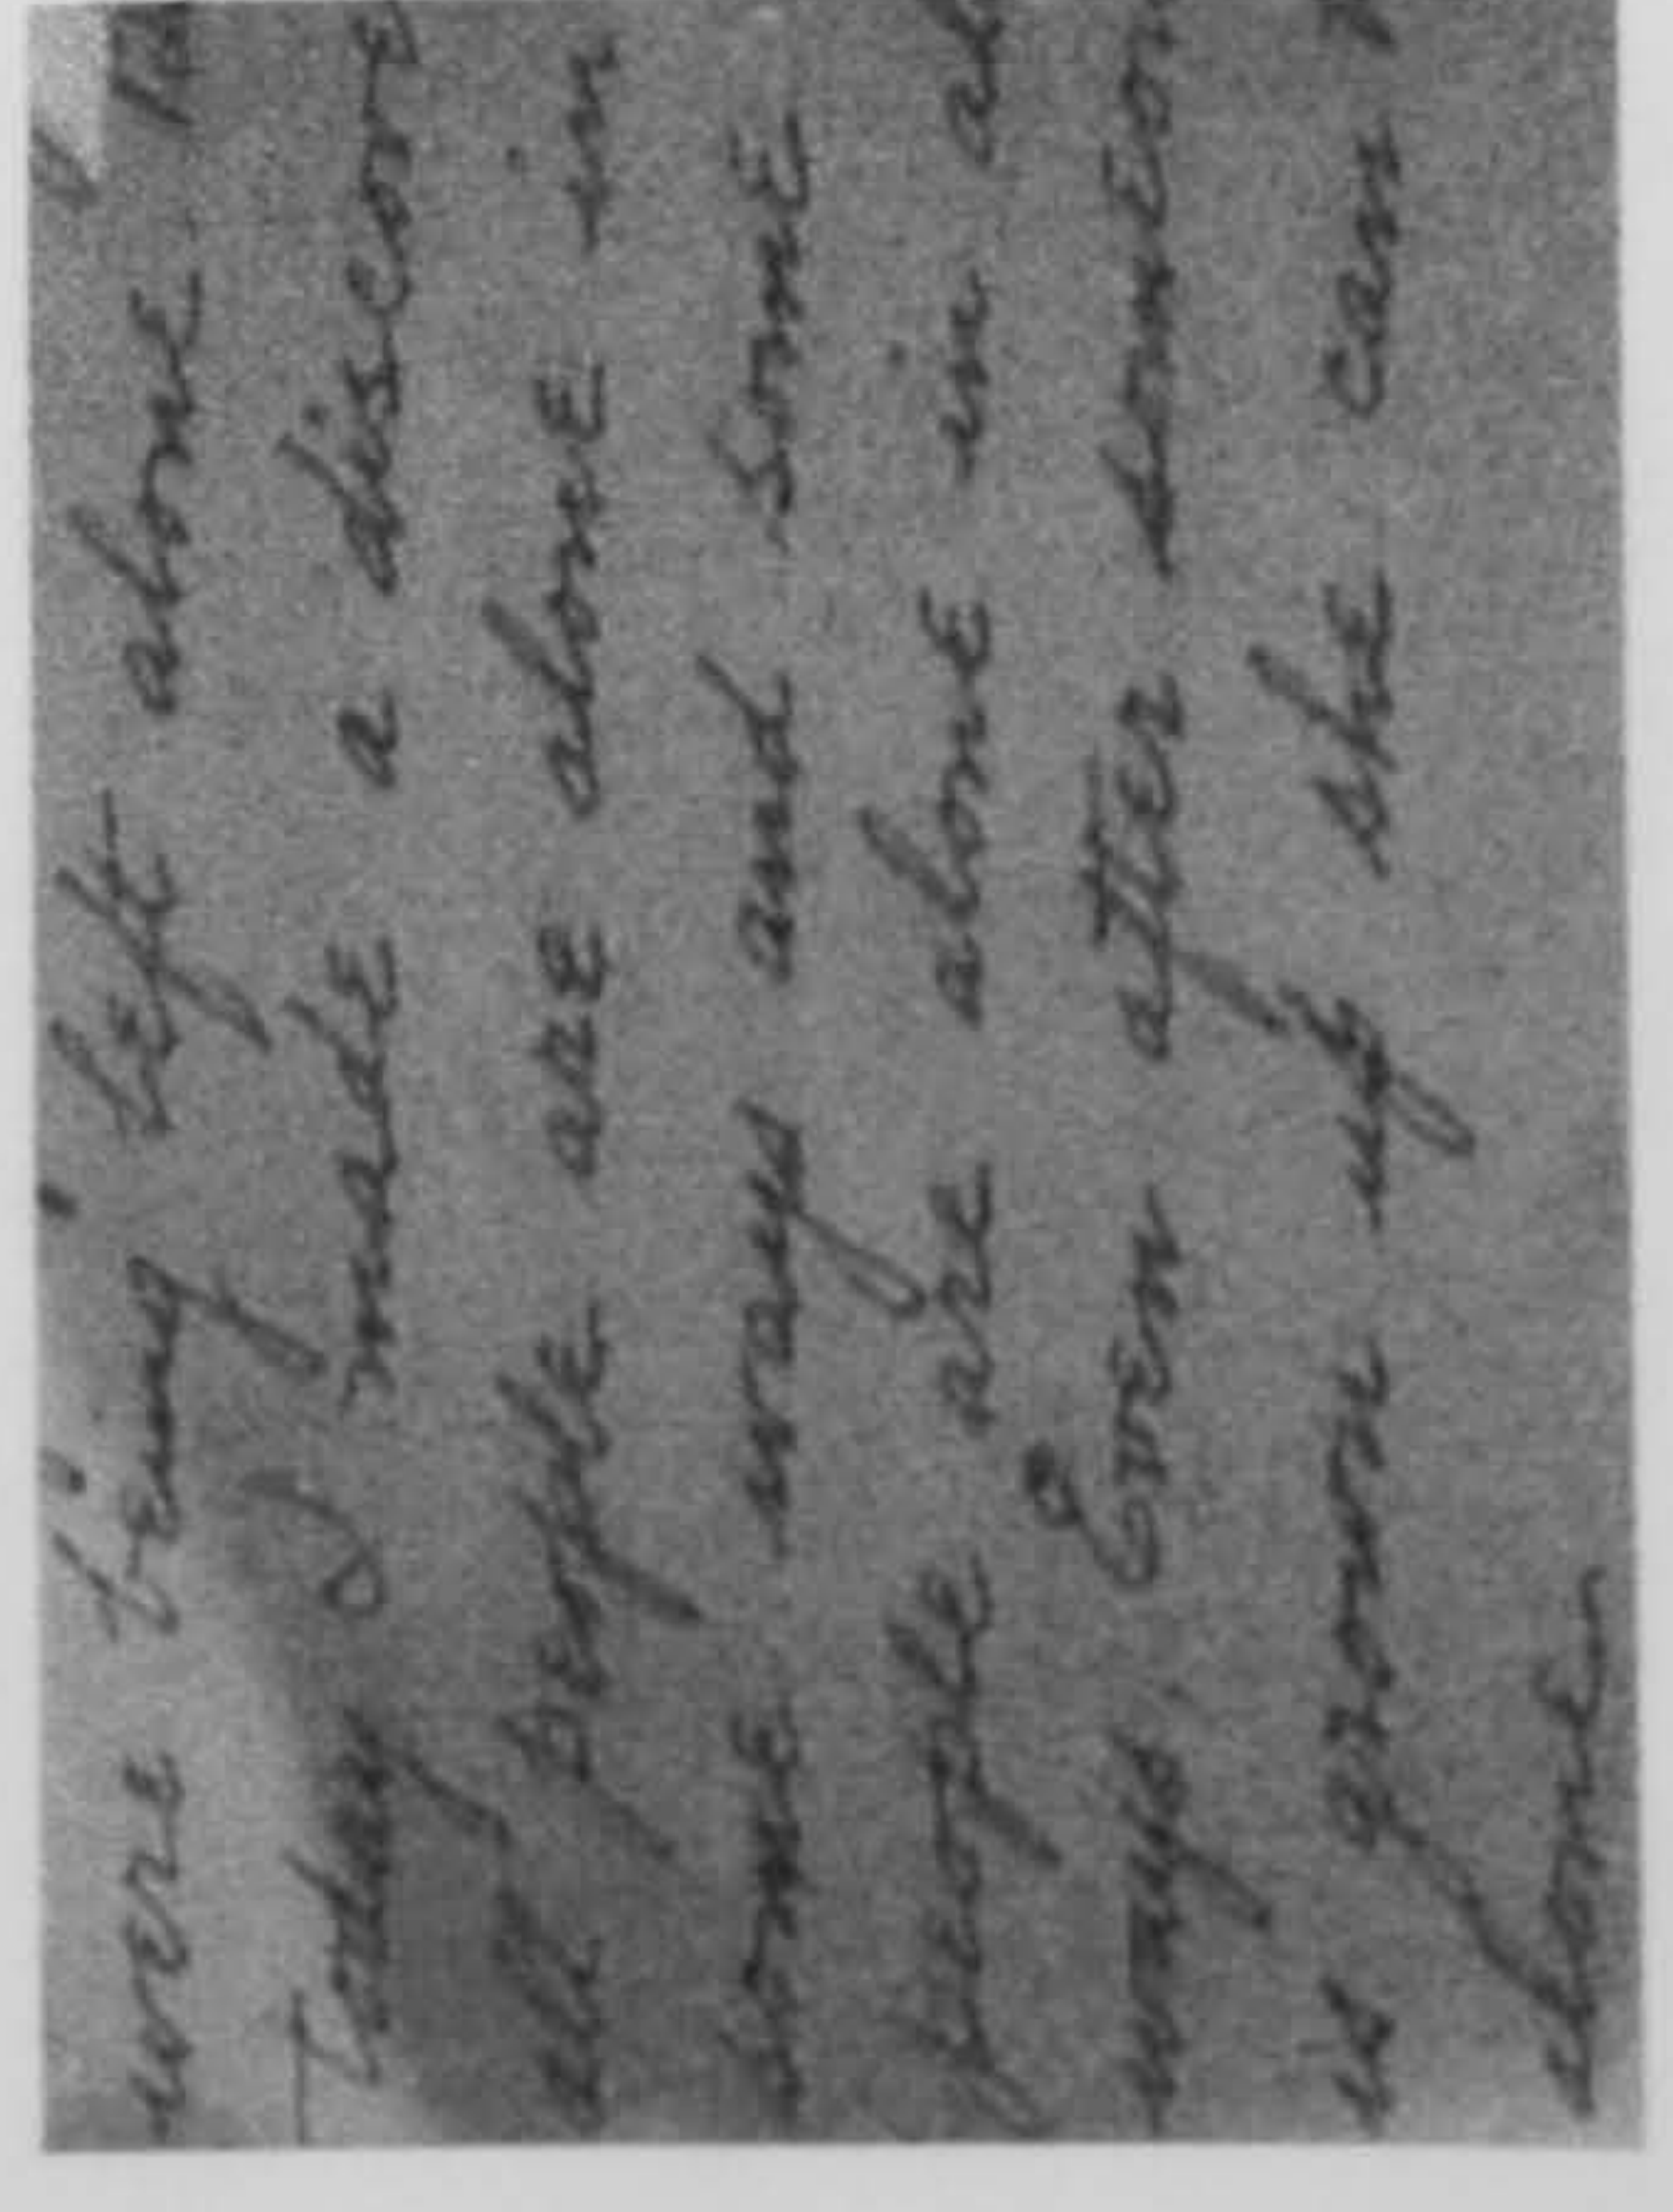 were being left alone
Today I made a discove
all people are alone in
some ways and some
people are alone in al
ways. Even after someon
is grown up she can
alone